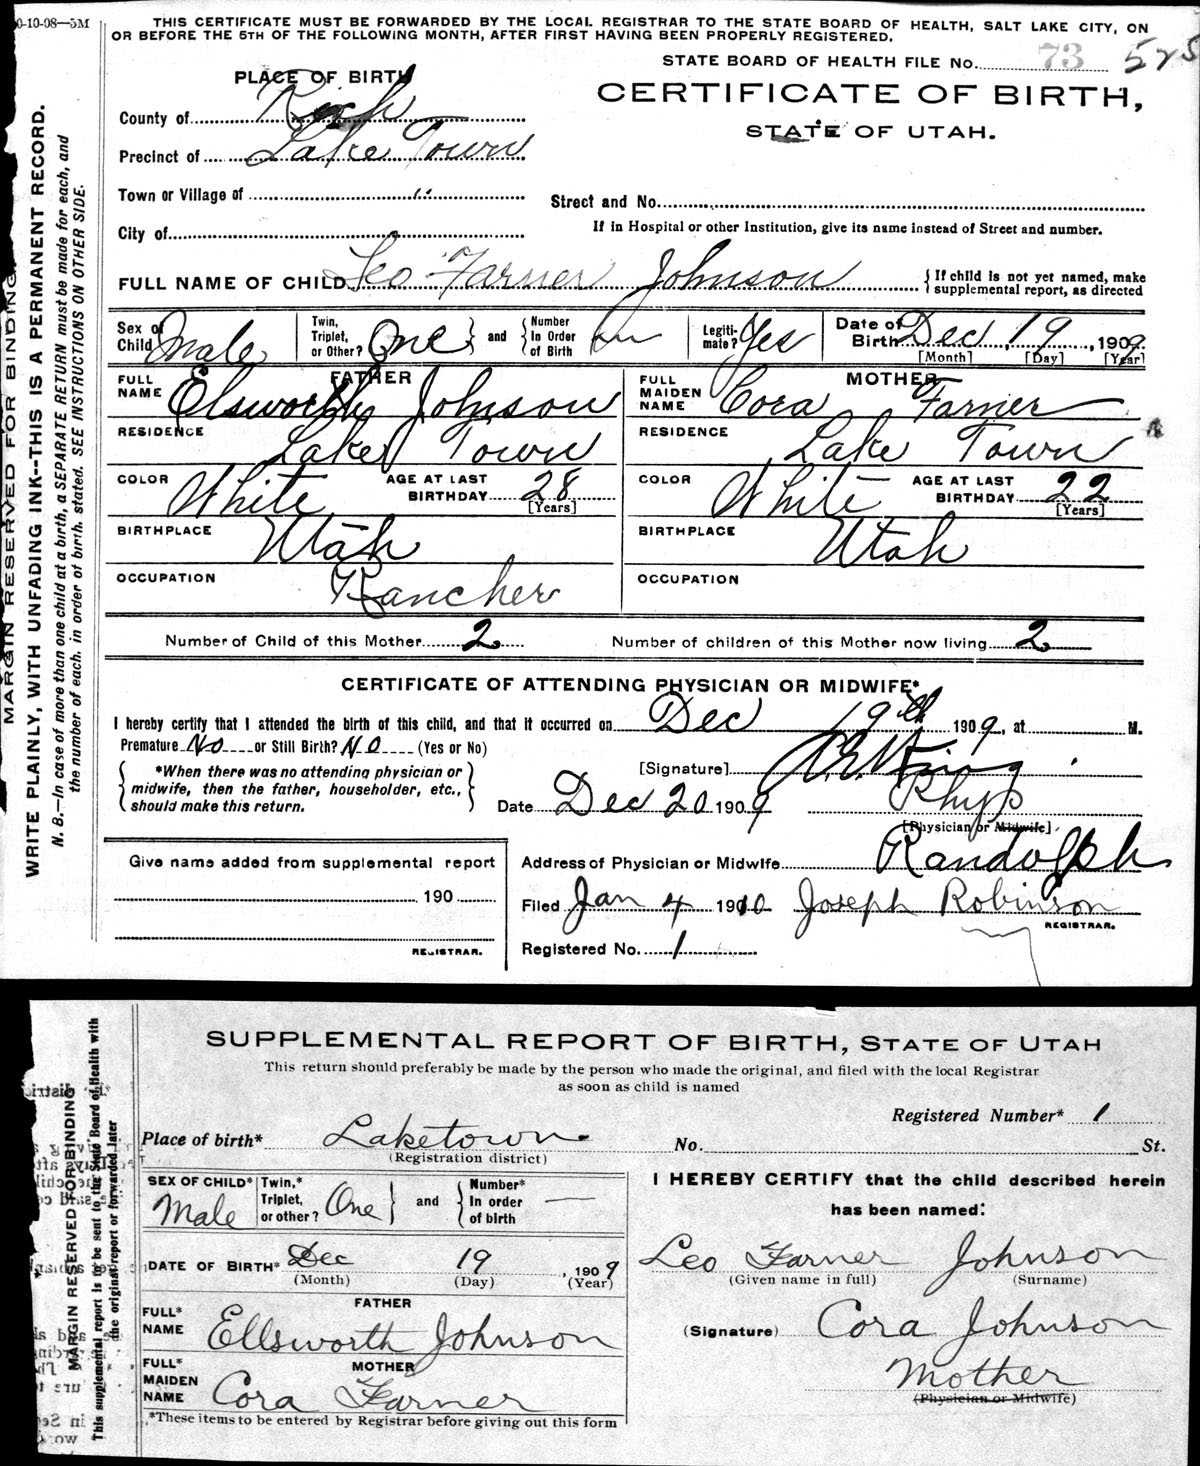 0-10-08—5M
THIS CERTIFICATE MUST BE FORWARDED BY THE LOCAL REGISTRAR TO THE STATE BOARD OF HEALTH, SALT LAKE CITY, ON
OR BEFORE THE 5TH OF THE FOLLOWING MONTH, AFTER FIRST HAVING BEEN PROPERLY REGISTERED.
STATE BOARD OF HEALTH FILE No. 73 525
PLACE OF BIRTH
CERTIFICATE OF BIRTH,
STATE OF UTAH.
County of Rich
Precinct of Lake Town
Town or Village of "
Street and No.
City of
If in Hospital or other Institution, give its name instead of Street and number.
FULL NAME OF CHILD Leo Farner Johnson { If child is not yet named, make supplemental report, as directed
Sex of Child Male Twin, Triplet, or Other? One } and { Number In Order of Birth Legitimate? Yes Date of Birth Dec 19, 1909.
[Month] [Day] [Year]
FATHER MOTHER
FULL NAME Elsworth Johnson FULL MAIDEN NAME Cora Farner
RESIDENCE Lake Town RESIDENCE Lake Town
COLOR White AGE AT LAST BIRTHDAY 28 [Years] COLOR White AGE AT LAST BIRTHDAY 22 [Years]
BIRTHPLACE Utah BIRTHPLACE Utah
OCCUPATION Rancher OCCUPATION
Number of Child of this Mother 2 Number of children of this Mother now living 2
CERTIFICATE OF ATTENDING PHYSICIAN OR MIDWIFE*
I hereby certify that I attended the birth of this child, and that it occurred on Dec 19th 1909, at M.
Premature No or Still Birth? No (Yes or No)
{ *When there was no attending physician or midwife, then the father, householder, etc., should make this return. }
[Signature]
Date Dec 20 1909 Phys
[Physician or Midwife]
Give name added from supplemental report
190
REGISTRAR.
Address of Physician or Midwife Randolph
Filed Jan 4 1910 Joseph Robinson
REGISTRAR.
Registered No. 1
MARGIN RESERVED FOR BINDING.
WRITE PLAINLY, WITH UNFADING INK--THIS IS A PERMANENT RECORD.
N. B.—In case of more than one child at a birth, a SEPARATE RETURN must be made for each, and
the number of each, in order of birth, stated. SEE INSTRUCTIONS ON OTHER SIDE.
SUPPLEMENTAL REPORT OF BIRTH, STATE OF UTAH
This return should preferably be made by the person who made the original, and filed with the local Registrar
as soon as child is named
Registered Number* 1
Place of birth* Laketown No. St.
(Registration district)
SEX OF CHILD* Male Twin,* Triplet, or other? One } and { Number* In order of birth —
I HEREBY CERTIFY that the child described herein
has been named:
DATE OF BIRTH* Dec 19, 1909
(Month) (Day) (Year)
Leo Farner Johnson
(Given name in full) (Surname)
FATHER
FULL* NAME Ellsworth Johnson
(Signature) Cora Johnson
MOTHER
FULL* MAIDEN NAME Cora Farner
Mother
(Physician or Midwife)
*These items to be entered by Registrar before giving out this form
MARGIN RESERVED FOR BINDING
This supplemental report is to be sent to the State Board of Health with
the original report or forwarded later